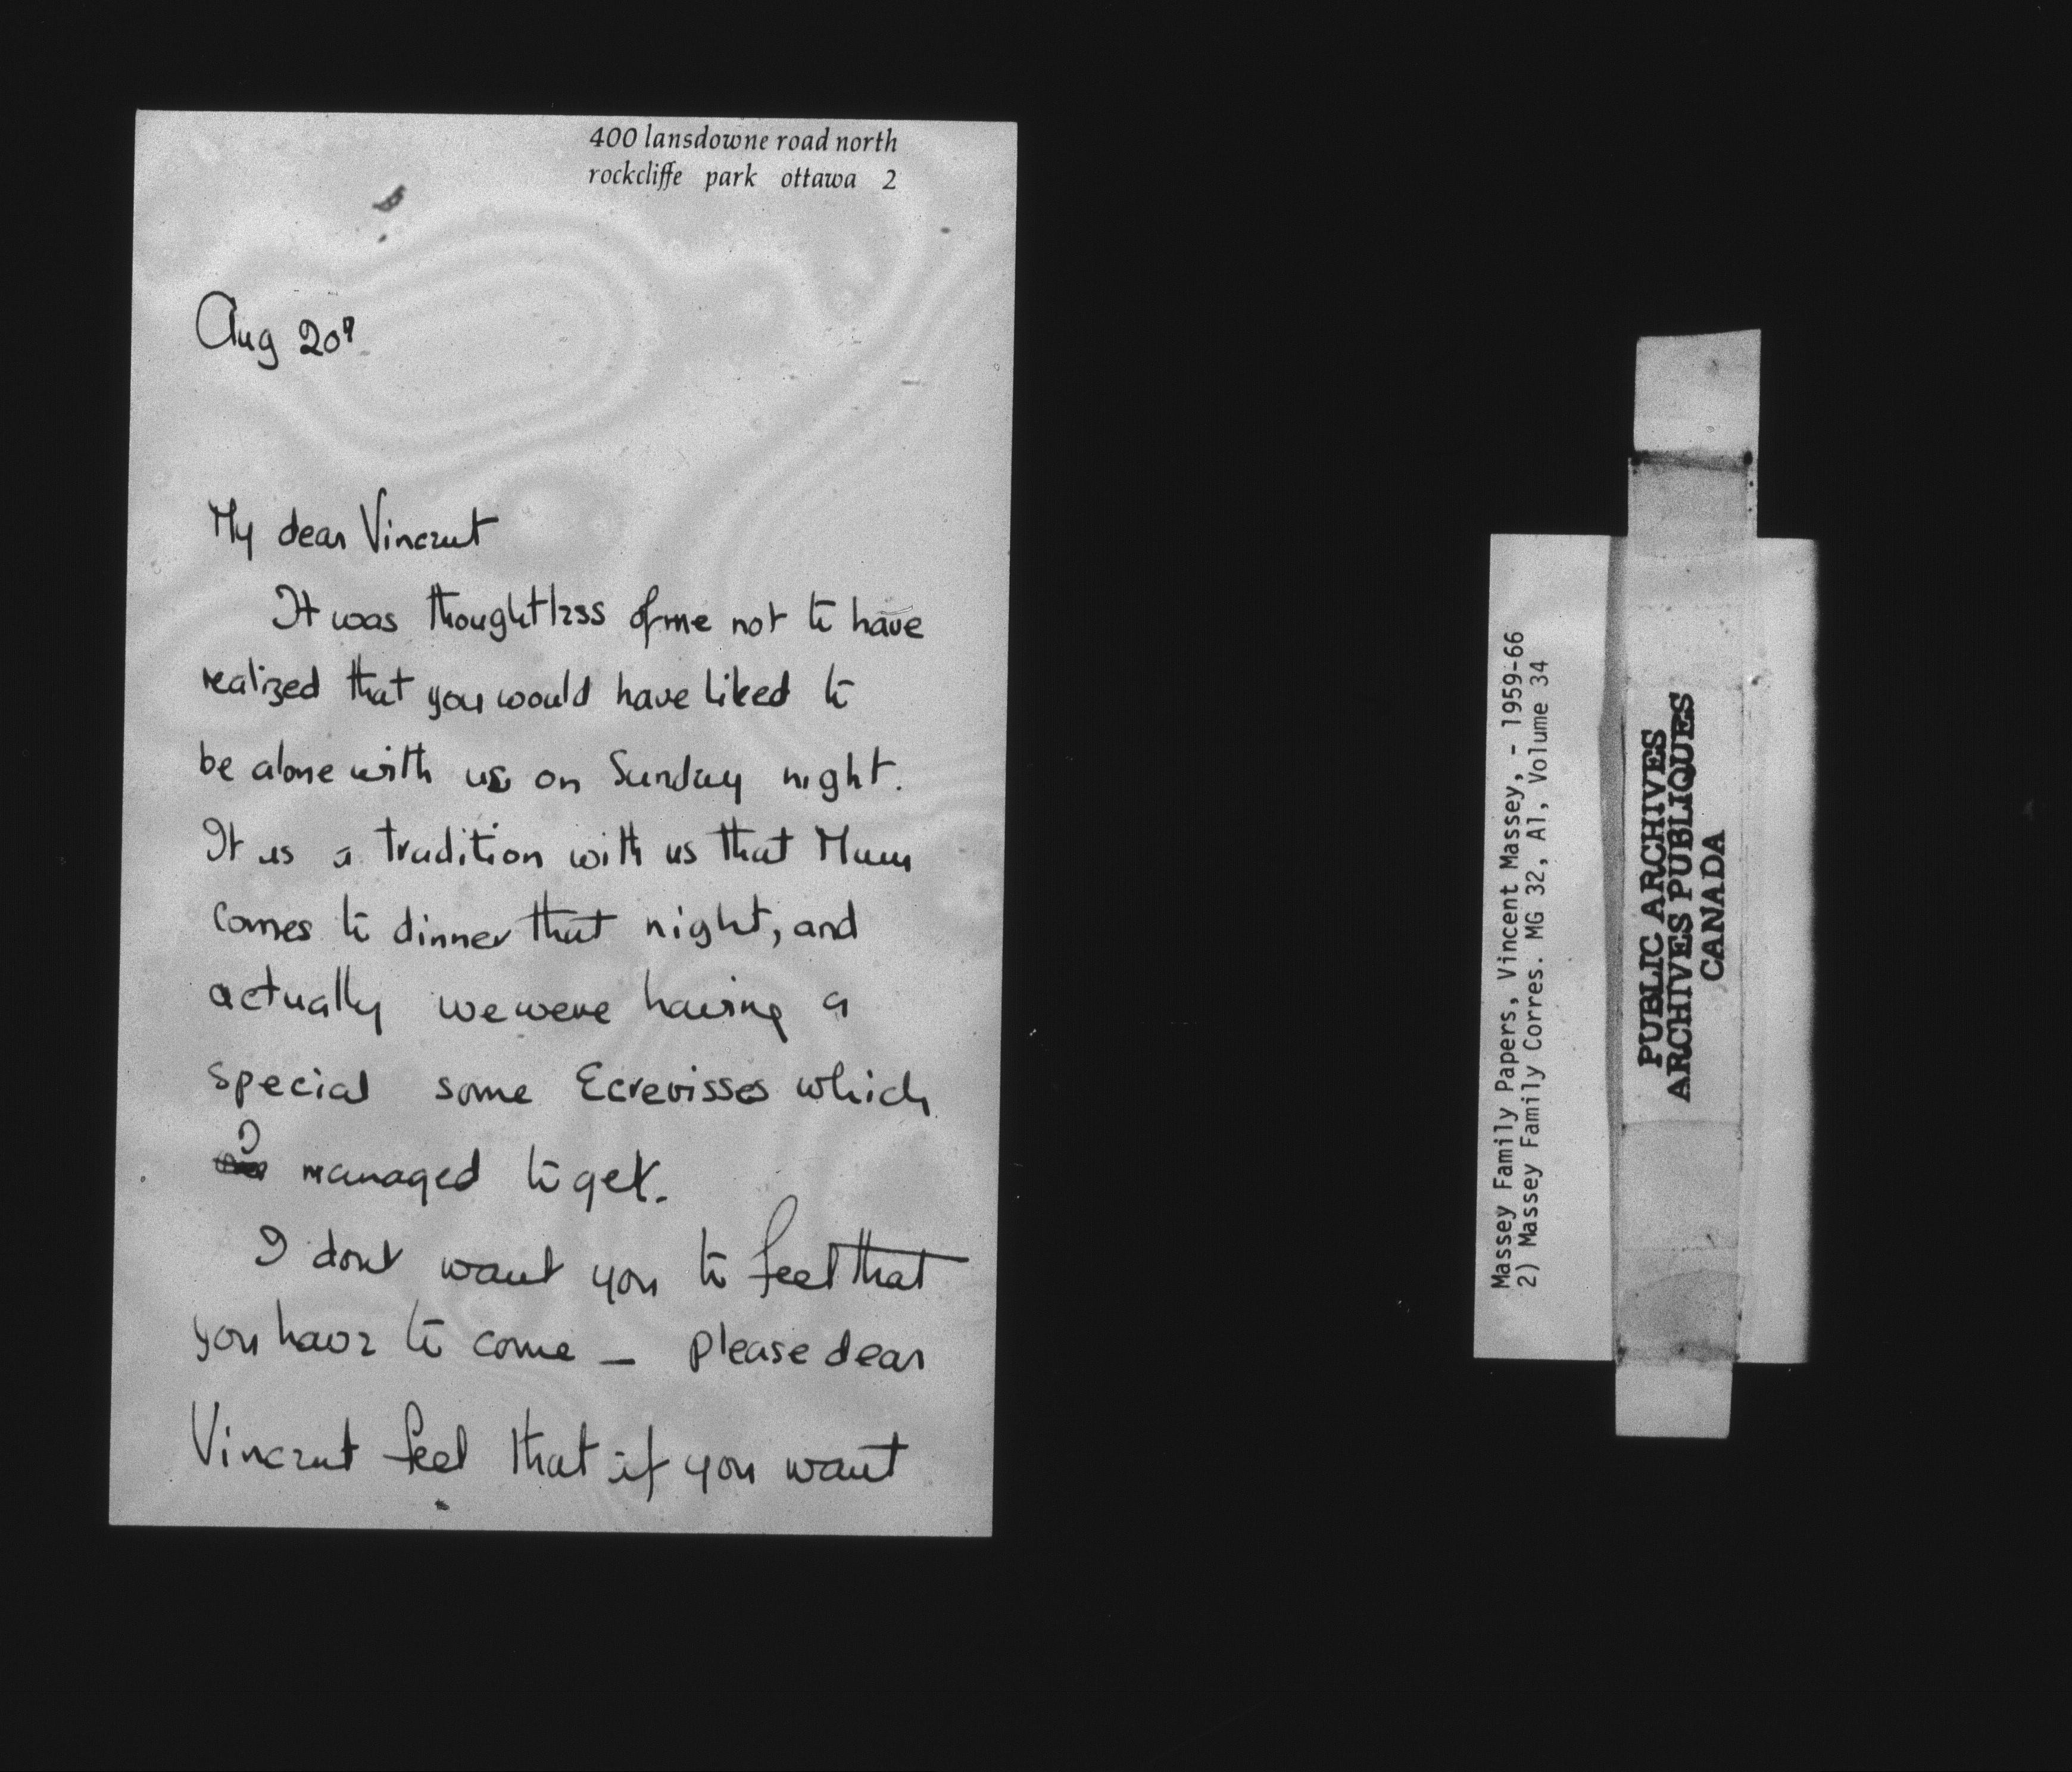 400 lansdowne road north
rockcliffe park ottawa 2
Aug 20
My dear Vincent
It was thoughtless of me not to have
realized that you would have liked to
be alone with us on Sunday night.
It is a tradition with us that Mum
comes to dinner that night, and
actually we were having a
special some Ecrevisses which
I managed to get.
I dont want you to feel that
you have to come — please dear
Vincent feel that if you want
Massey Family Papers, Vincent Massey, - 1959-66
2) Massey Family Corres. MG 32, A1, Volume 34
PUBLIC ARCHIVES
ARCHIVES PUBLIQUES
CANADA